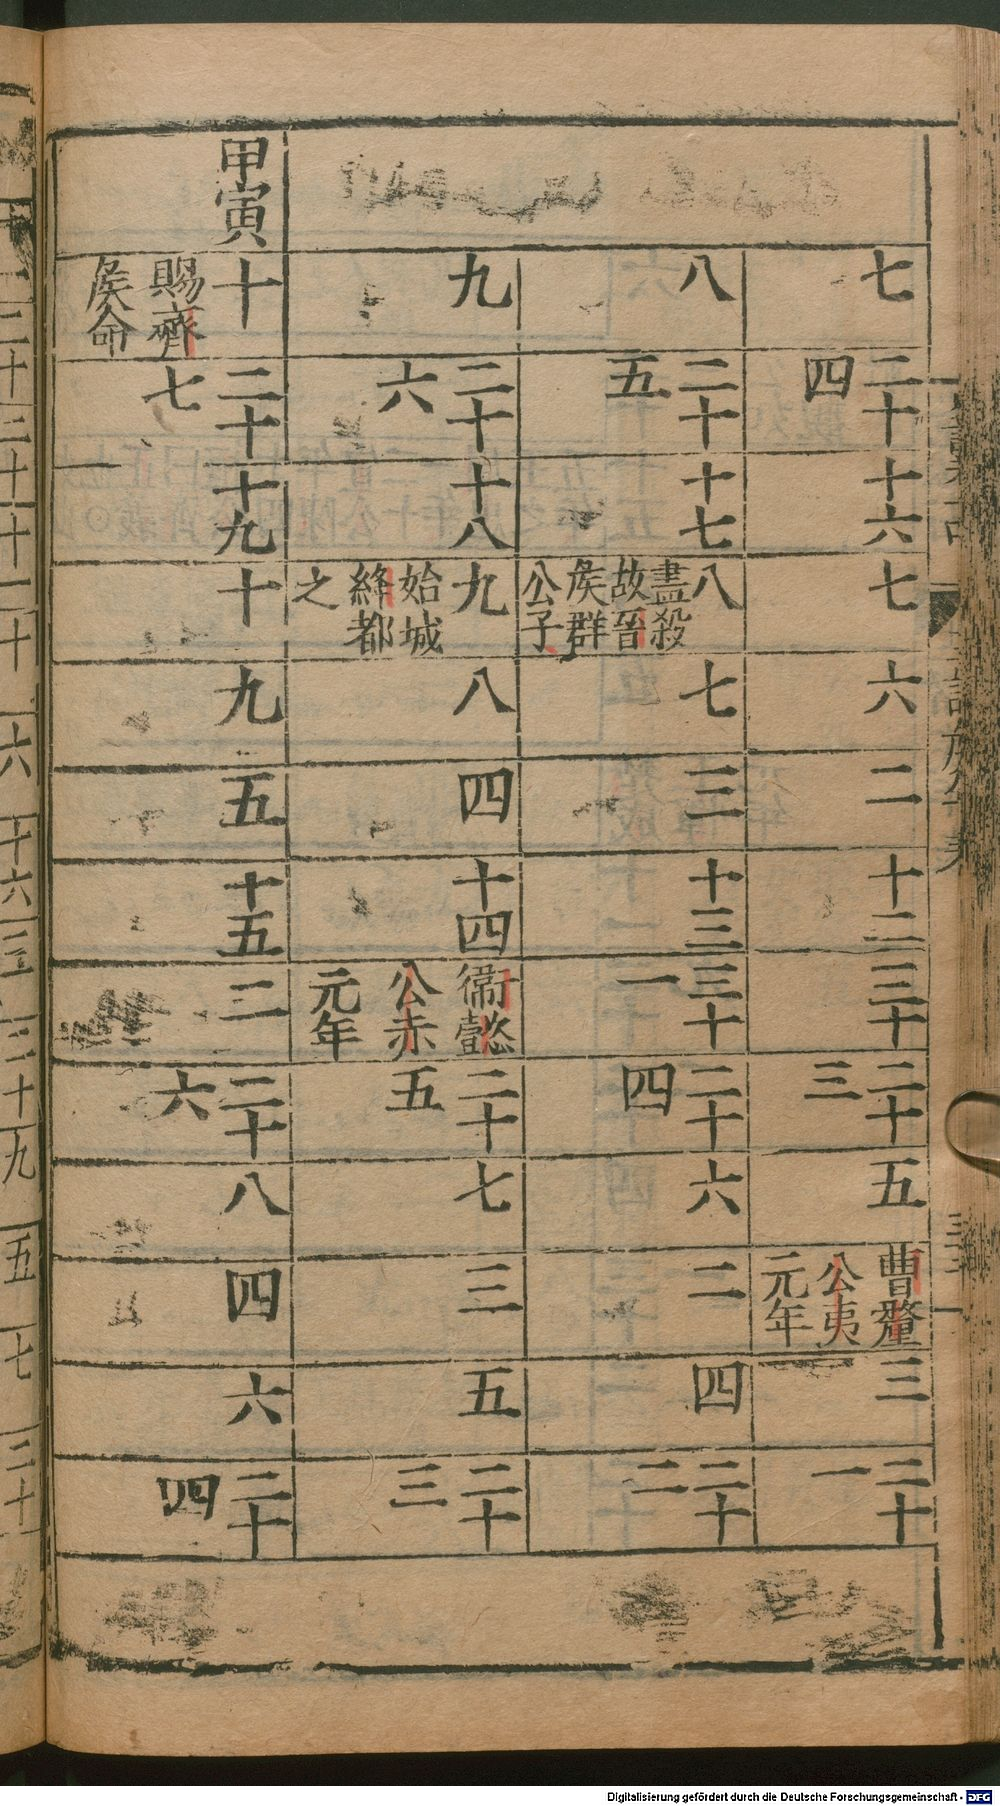 七
二十四
十六
七
六
二
十二
三十
二十三
五
曹釐公夷元年
三
二十一
八
二十五
十七
八 盡殺故晉侯群公子
七
三
十三
三十一
二十四
六
二
四
二十二
九
二十六
十八
九 始城絳都之
八
四
十四
衞懿公赤元年
二十五
七
三
五
二十三
甲寅
十 賜齊侯命
二十七
十九
十
九
五
十五
二
二十六
八
四
六
二十四
Digitalisierung gefördert durch die Deutsche Forschungsgemeinschaft - DFG